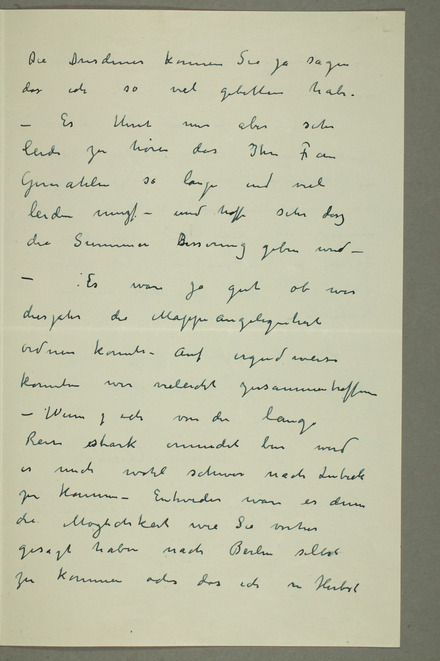 Die Dresdener können Sie ja sagen
das ich so viel gebetten habe.
– Es thut mir aber sehr
leide zu hören das Ihr Frau
Gemahlin so lange und viel
leiden muss – und hoffe sehr das
die Summer Besserung geben wird –
– Es wäre ja gut ob wir
diesjahr die Mappe angelegenheit
ordnen konnte. Auf irgend weise
konnten wir vieleicht zusammentreffen
– Wenn ich von die lange
Reise stark ermüdet bin wird
es mich wohl schwer nach Lübeck
zu kommen – Entweder wäre es denn
die Möglichkeit wie Sie vorher
gesagt haben nach Berlin selbst
zu kommen oder das ich in Herbst